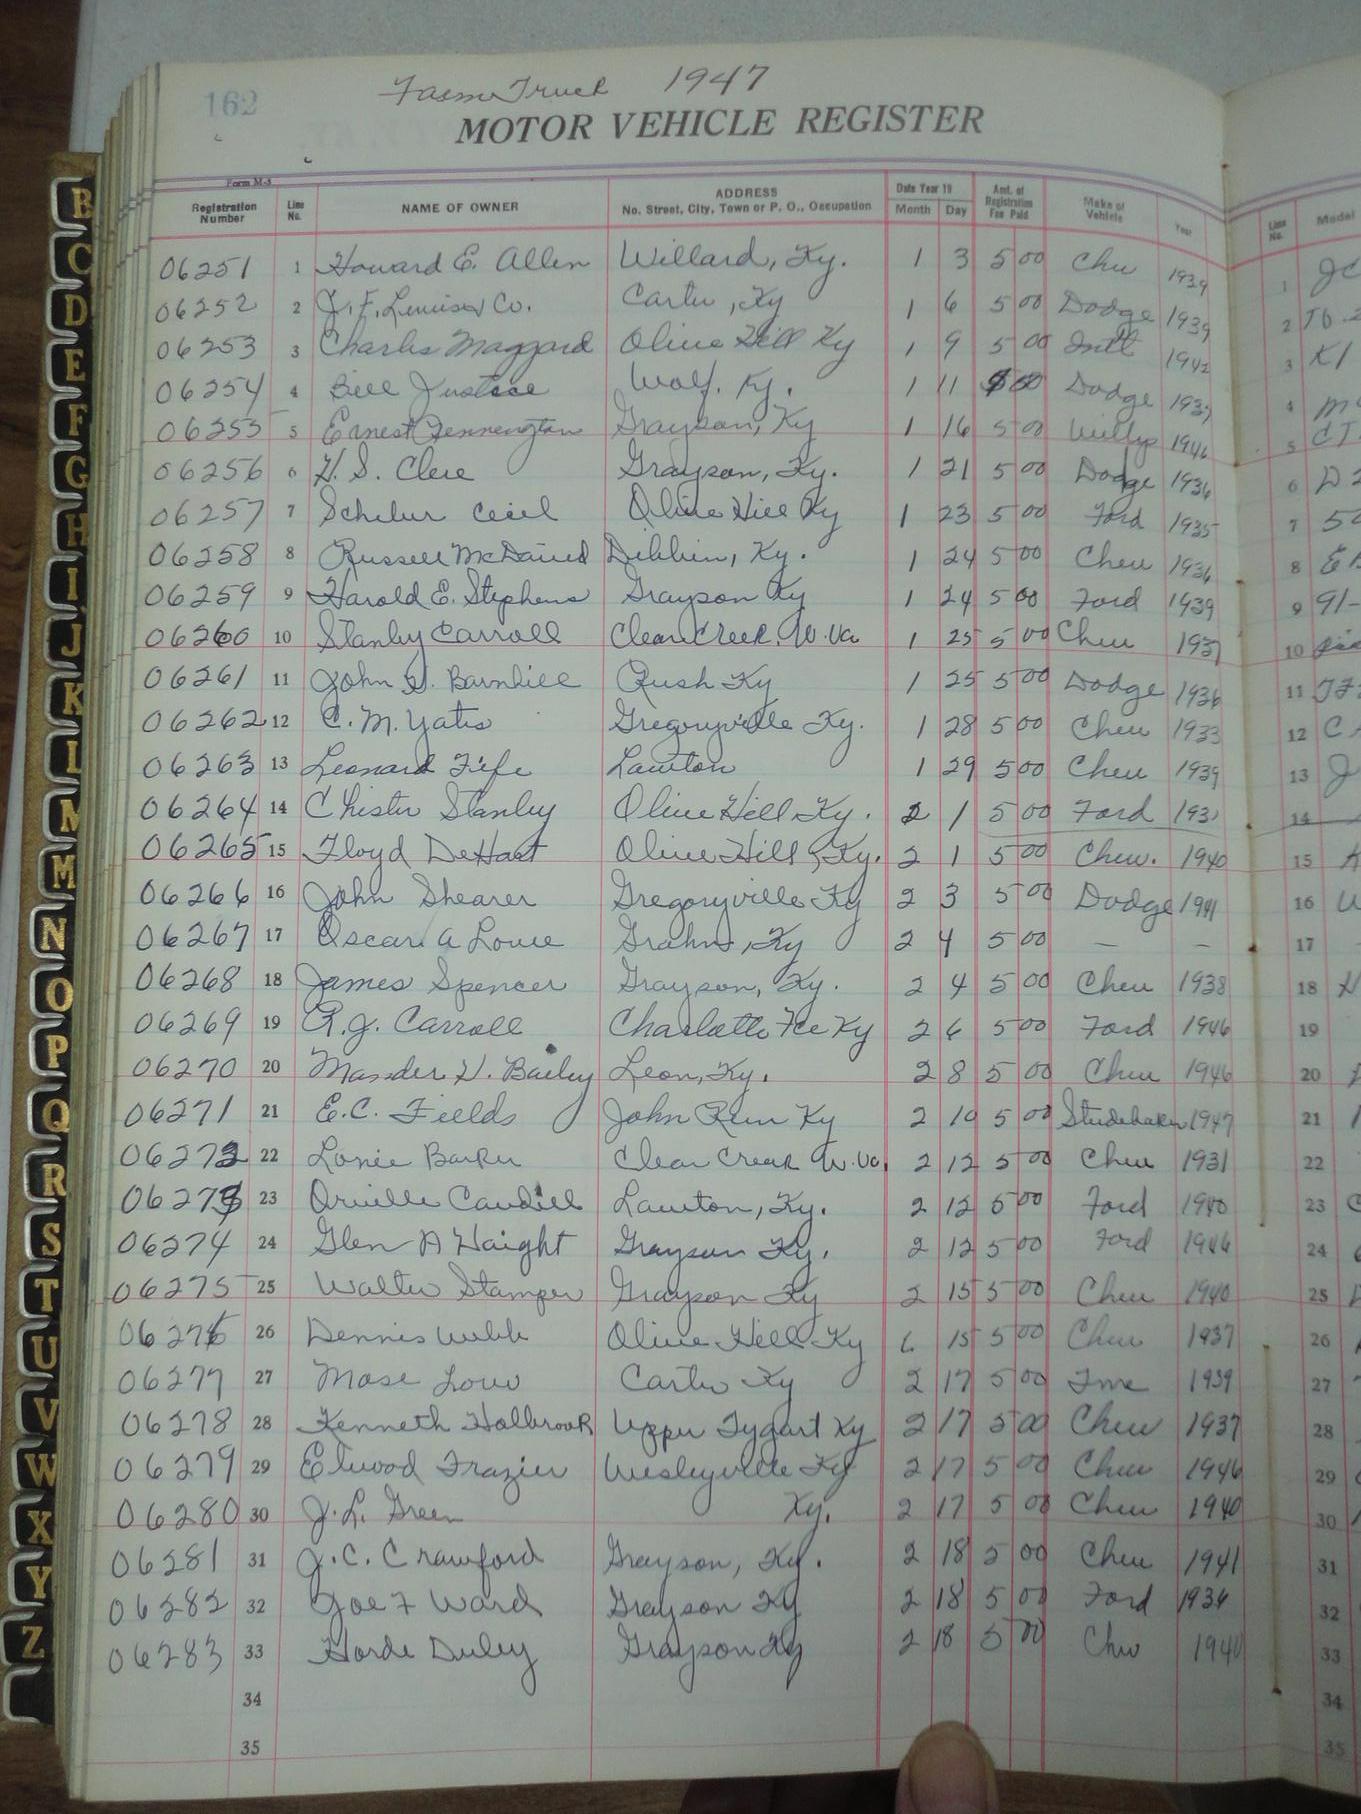 162
Farm Truck 1947
MOTOR VEHICLE REGISTER
Form M-3
Registration Number Line No. NAME OF OWNER ADDRESS No. Street, City, Town or P. O., Occupation Date Year 19 Month Day Amt. of Registration Fee Paid Make of Vehicle Year Line No. Model
06251 1 Howard E. Allen Willard, Ky. 1 3 5 00 Chev 1939 1 JC
06252 2 Co. Carter, Ky 1 6 5 00 Dodge 1939 2
06253 3 Charles Maggard Olive Hill Ky 1 9 5 00 Intl 1942 3 K1
06254 4 Bill Justice Wolf. Ky. 1 11 Dodge 4
06255 5 Ernest Pennengton Grayson, Ky 1 16 5 00 Willys 1946 5 CJ
06256 6 H. S. Clere Grayson, Ky. 1 21 5 00 Dodge 1936 6 D2
06257 7 Cecil Olive Hill Ky 1 23 5 00 Ford 1935 7 50
06258 8 Russell McDavid Ky. 1 24 5 00 Chev 1936 8
06259 9 Harold E. Stephens Grayson Ky 1 24 5 00 Ford 1939 9 91-
06260 10 Stanley Carroll Clear Creek, W. Va 1 25 5 00 Chev 1937 10
06261 11 John Barnhill Rush Ky 1 25 5 00 Dodge 1936 11
06262 12 C. M. Yates Gregoryville Ky. 1 28 5 00 Chev 1933 12 CA
06263 13 Leonard Fife Lawton 1 29 5 00 Chev 1939 13 J
06264 14 Chister Stanley Olive Hill Ky. 2 1 5 00 Ford 14
06265 15 Floyd DeHart Olive Hill, Ky. 2 1 5 00 Chev. 1940 15 K
06266 16 John Shearer Gregoryville Ky 2 3 5 00 Dodge 1941 16 W
06267 17 Oscar A Lowe Grahn, Ky 2 4 5 00 — — 17
06268 18 James Spencer Grayson, Ky. 2 4 5 00 Chev 1938 18 H
06269 19 R. J. Carroll Charlotte Fce Ky 2 6 5 00 Ford 1946 19
06270 20 H. Bailey Leon, Ky. 2 8 5 00 Chev 1946 20
06271 21 E.C. Fields John Run Ky 2 10 5 00 Studebaker 1947 21
06272 22 Lonie Barker Clear Creek W. Va. 2 12 5 00 Chev 1931 22
06273 23 Orville Caudill Lawton, Ky. 2 12 5 00 Ford 1940 23
06274 24 Glen A Haight Grayson Ky. 2 12 5 00 Ford 1946 24
06275 25 Walter Stamper Grayson Ky 2 15 5 00 Chev 1940 25
06276 26 Dennis Webb Olive Hill Ky 15 5 00 Chev 1937 26
06277 27 Mose Lowe Carter Ky 2 17 5 00 1939 27
06278 28 Kenneth Holbrook Upper Tygart Ky 2 17 5 00 Chev 1937 28
06279 29 Elwood Frazier Wesleyville Ky 2 17 5 00 Chev 1946 29
06280 30 J. L. Green Ky. 2 17 5 00 Chev 1940 30
06281 31 J. C. Crawford Grayson, Ky. 2 18 5 00 Chev 1941 31
06282 32 Joe F Ward Grayson Ky 2 18 5 00 Ford 1936 32
06283 33 Horde Duley Grayson Ky 2 18 5 00 Chev 1940 33
34 34
35 35
B
C
D
E
F
G
H
I
J
K
L
M
M
N
O
P
Q
R
S
T
U
V
W
X
Y
Z